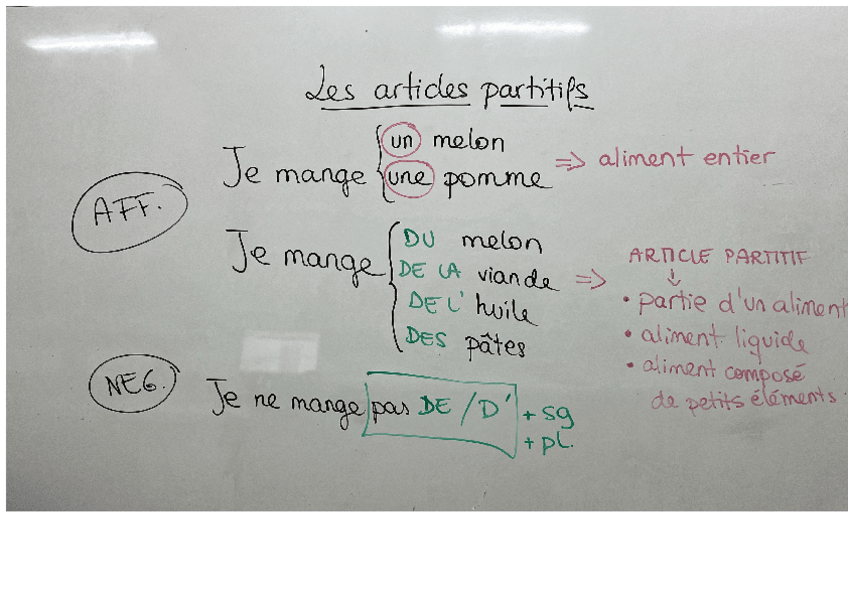 Les articles partitifs
AFF.
Je mange { un melon => aliment entier
une pomme
Je mange { DU melon
DE LA viande =>
DE L' huile
DES pâtes
ARTICLE PARTITIF
↓
• partie d'un aliment
• aliment liquide
• aliment composé
de petits éléments.
NEG.
Je ne mange pas DE / D' + sg
+ pl.